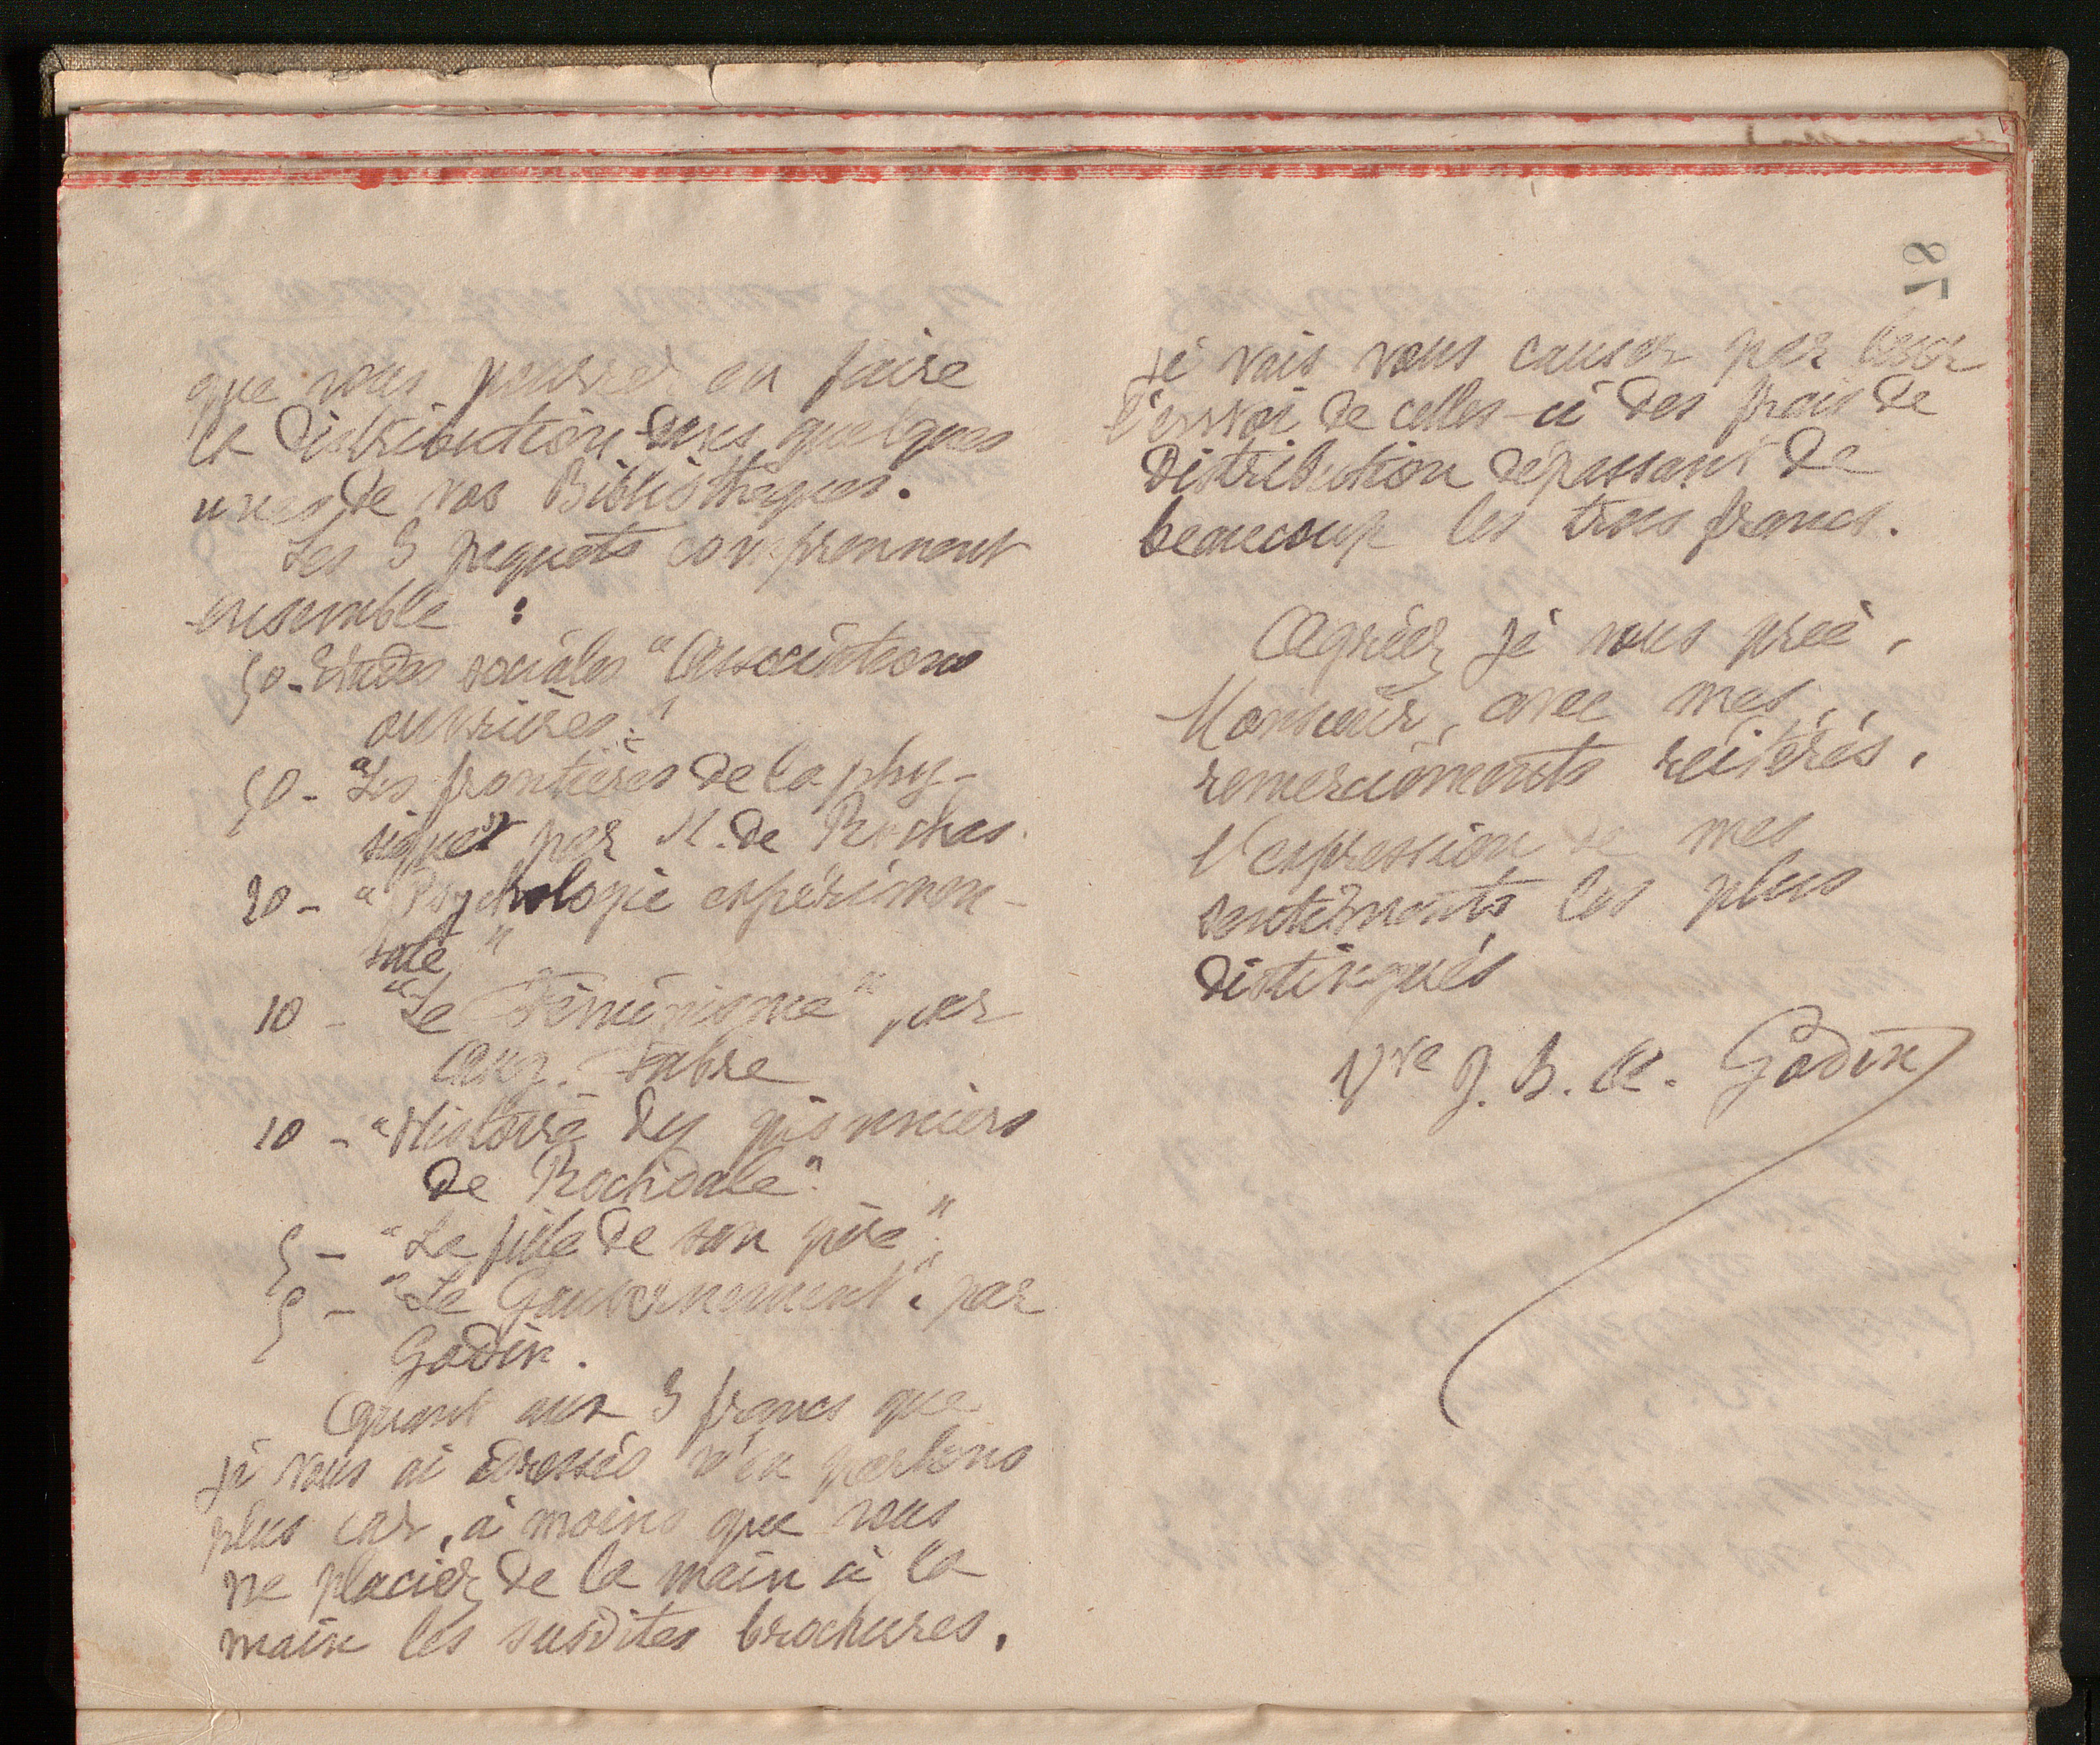 que vous pourrez en faire
la distribution dans quelques
unes de vos Bibliothèques.
Les 3 paquets comprennent
ensemble :
50 - Etudes sociales "Associations
ouvrières."
50 - "Les frontières de la phy-
sique" par M. de Rochas.
20 - "Psychologie expérimen-
tale"
10 - "Le Féminisme" par
Aug. Fabre
10 - "Histoire des pionniers
de Rochdale".
5 - "La fille de son père";
5 - "Le Gouvernement" par
Godin.
Quant aux 3 francs que
je vous ai adressés n'en parlons
plus car, à moins que vous
ne placiez de la main à la
main les susdites brochures,
78
je vais vous causer par
l'envoi de celles-ci des frais de
distribution dépassant de
beaucoup les trois francs.
Agréez, je vous prie,
Monsieur, avec mes
remerciements réitérés,
l'expression de mes
sentiments les plus
distingués
Vve J. B. A. Godin